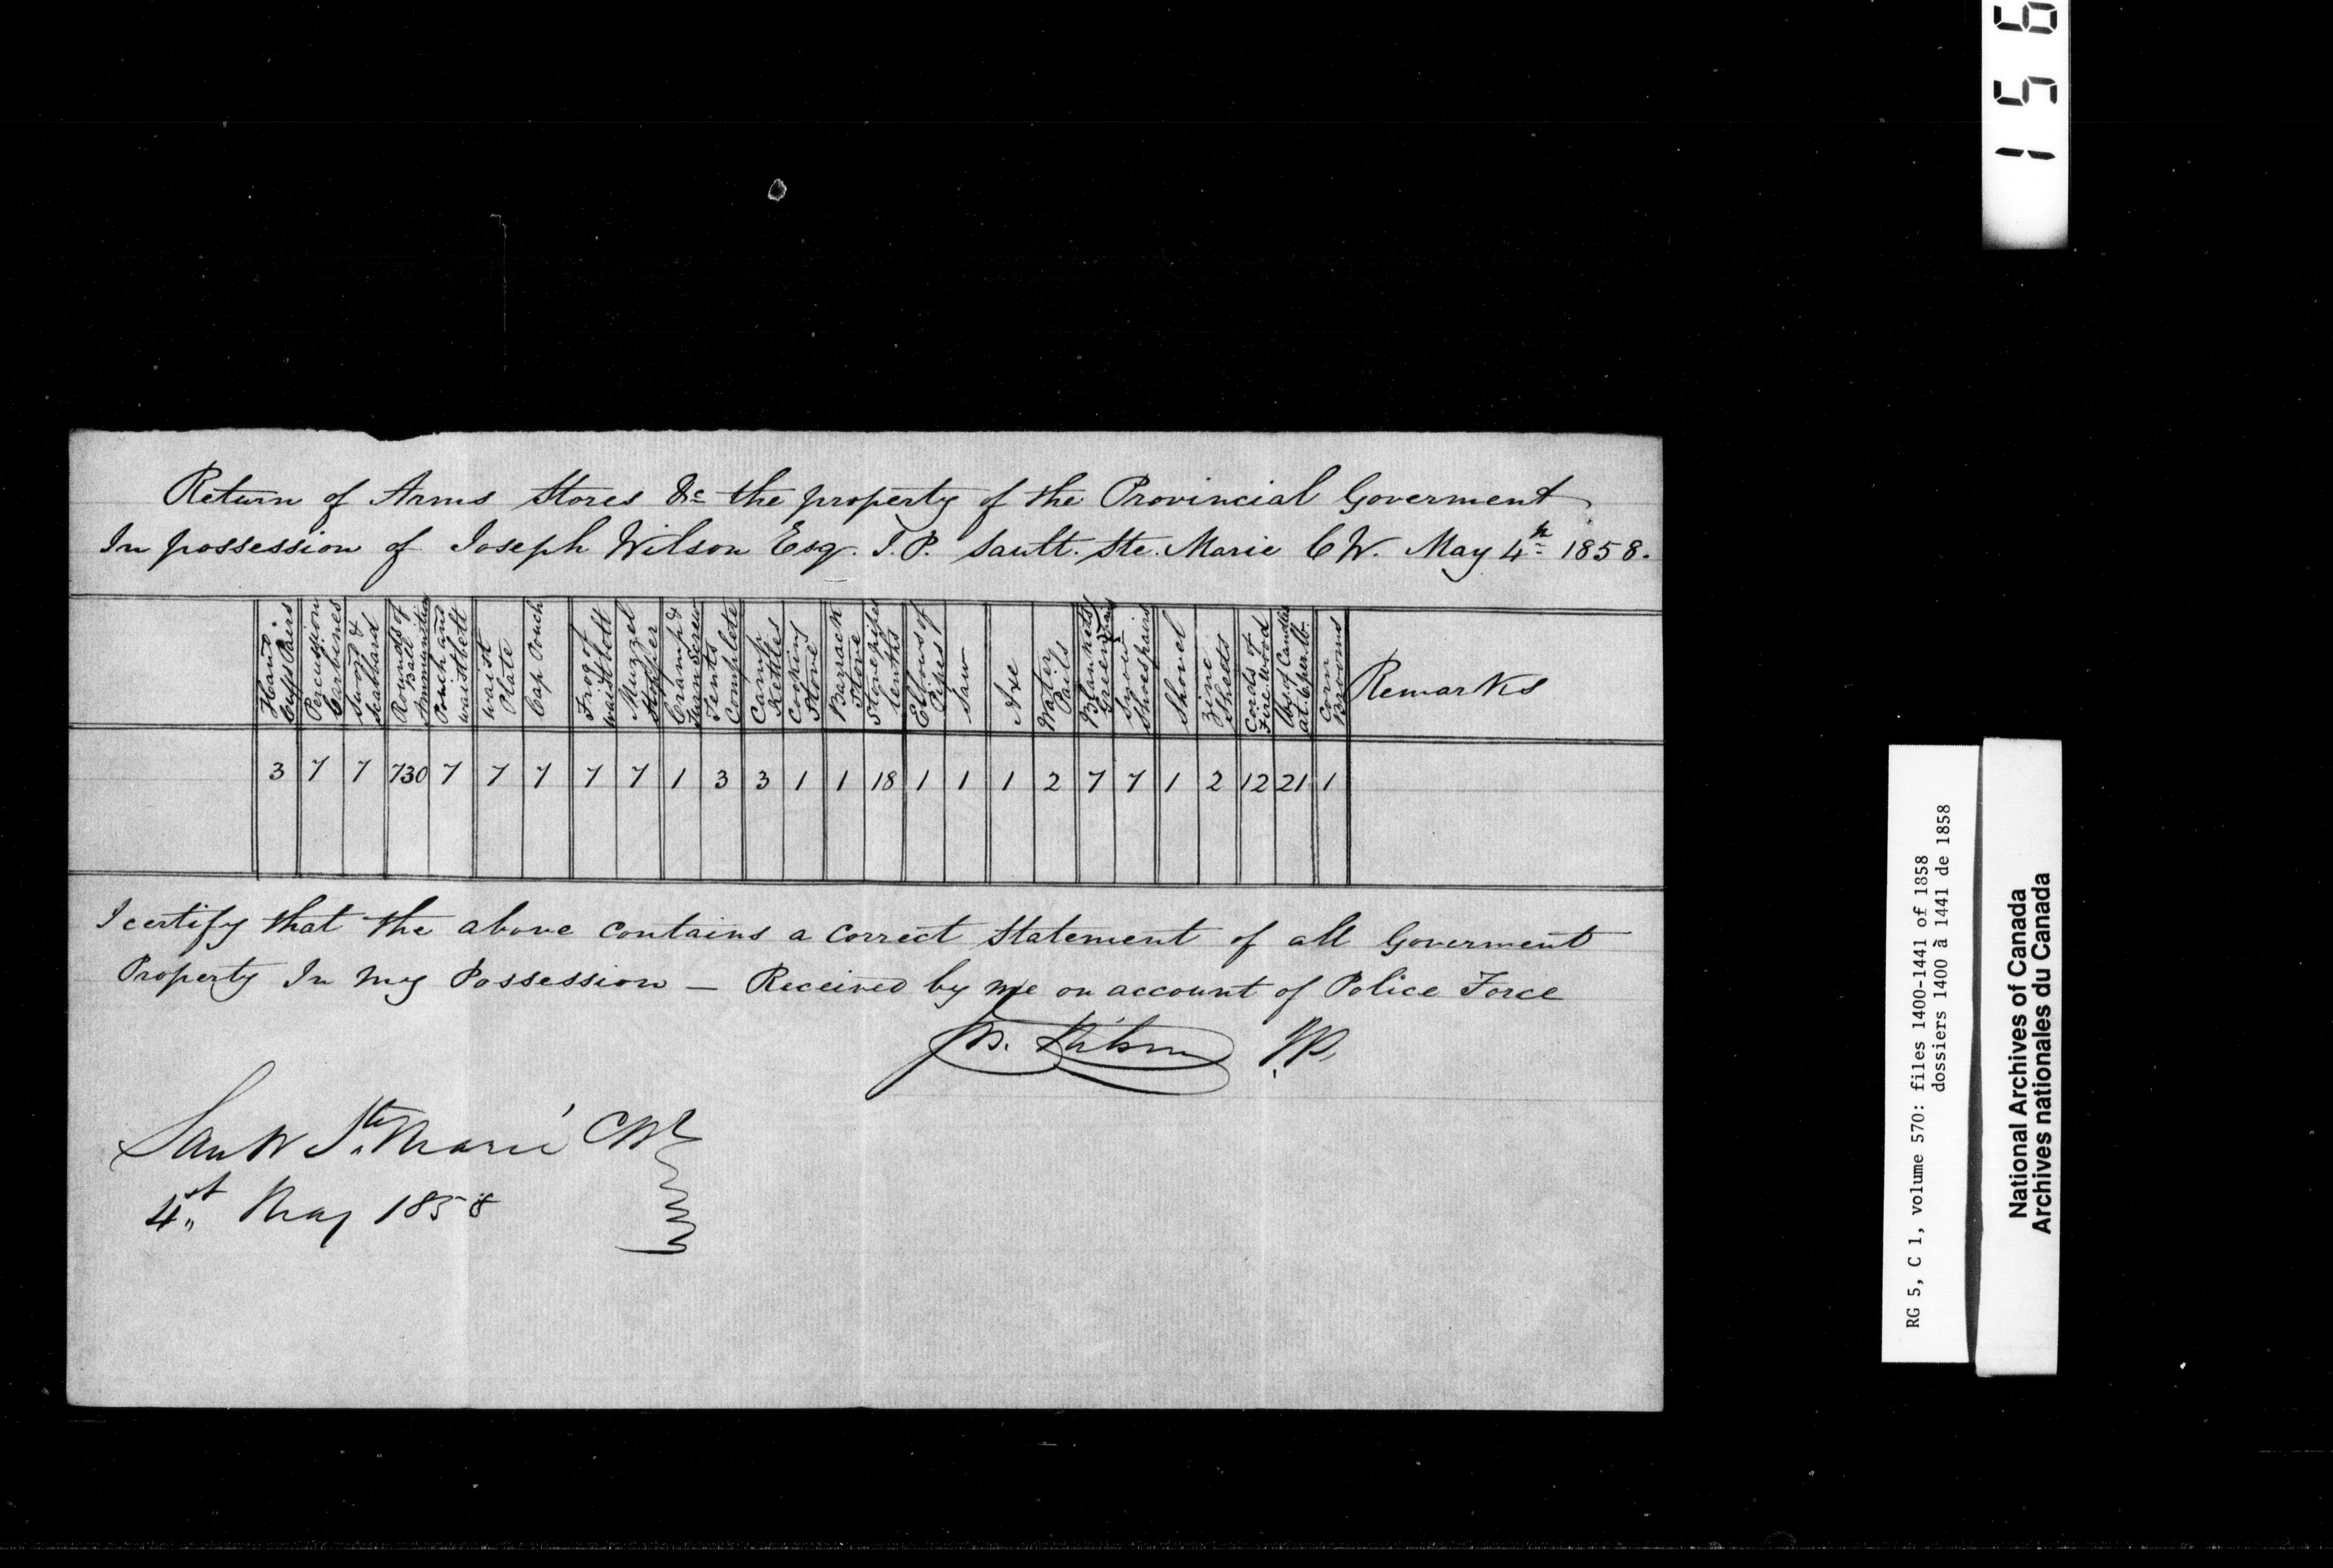 156
Return of Arms Stores &c the property of the Provincial Goverment
In possession of Joseph Wilson Esq. J.P. Sault. Ste. Marie C W. May 4th 1858.
Hand Cuffs Pairs
Percussion Carbines
Sword & Scabbard
Rounds of Ball Ammunition
Pouch and waistbelt
waist Plate
Cap Pouch
Frog of waistbelt
Muzzel Stopper
Cramp &
Tents Complete
Camp Kettles
Cooking Stove
Barrack Stove
Stovepipes lenths
Elbows of Pipes
Saw
Axe
Water Pails
Blankets
Snow Shoes pairs
Shovel
Zinc Sheets
Cords of Fire Wood
lbs. of Candles at 6 per lb.
Corn Brooms
Remarks
3 7 7 730 7 7 7 7 7 1 3 3 1 1 18 1 1 1 2 7 7 1 2 12 21 1
I certify that the above contains a correct Statement of all Goverment
Property In my Possession — Received by me on account of Police Force
Js. Wilson JP.
Sault Ste. Marie CW
4st May 1858
RG 5, C 1, volume 570: files 1400-1441 of 1858
dossiers 1400 à 1441 de 1858
National Archives of Canada
Archives nationales du Canada